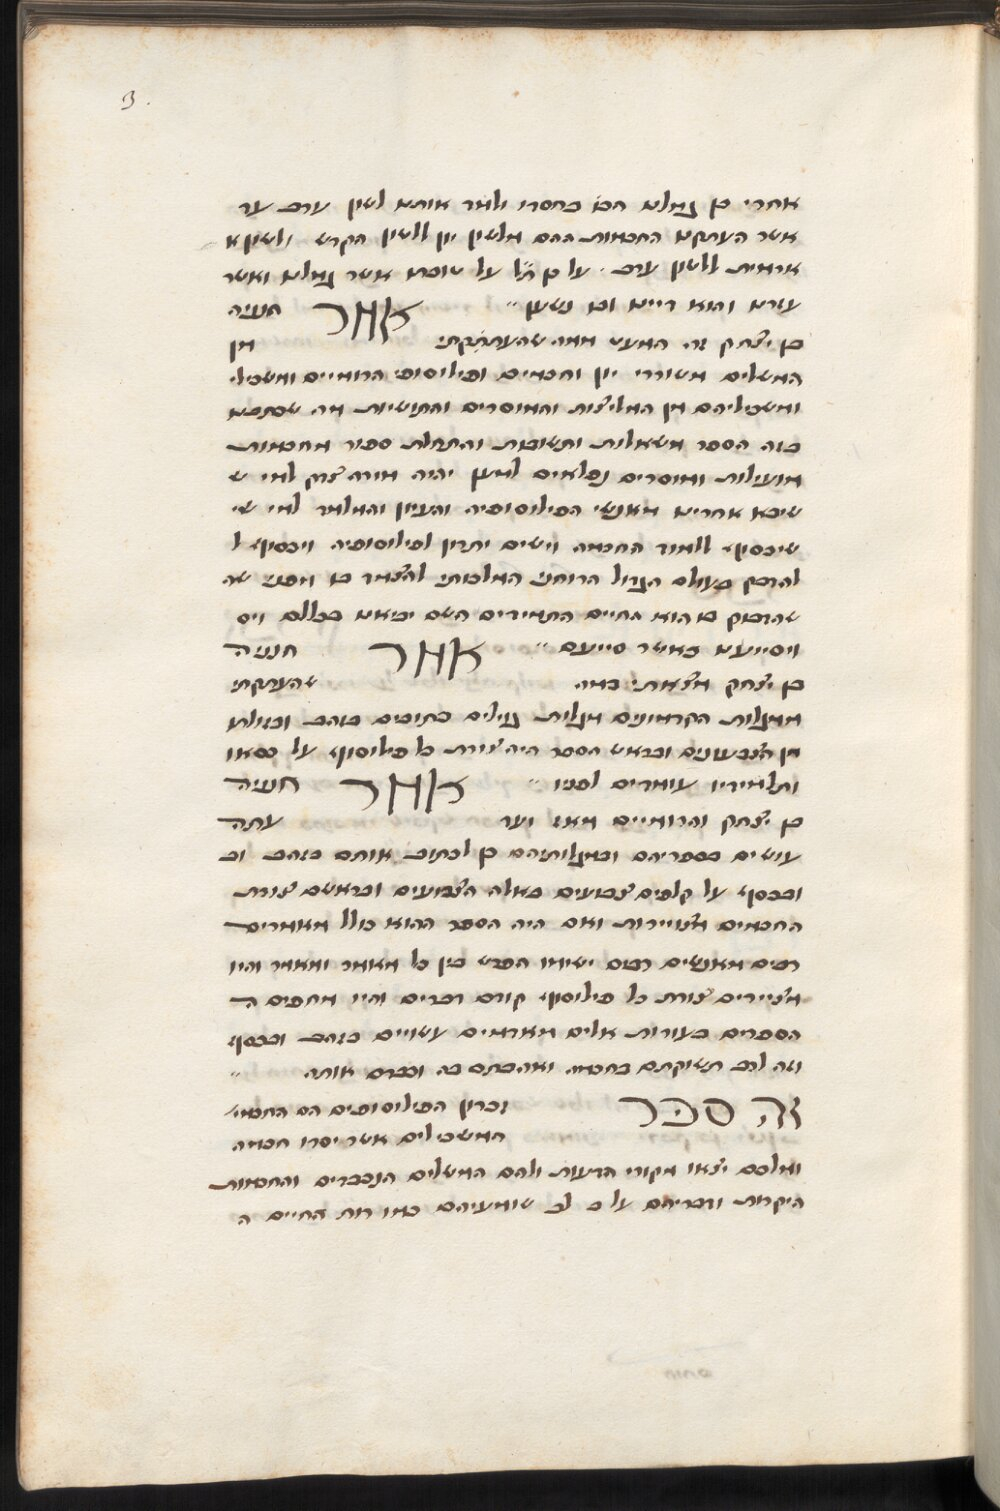 3.
אחרי כן גמלם הם בחסדו ולמד אותם לשון ערב עד
אשר העתקם החכמות ההם מלשון יון ללשון הקדש ולשון א
ארמית ללשון ערב על כן על שוכם אשר גמלם ואשר
עזרם והוא דיים ובו נשען
אמר חנניה
בן יצחק זה המעט ממה שהעתקתי מן
המשלים משוררי יון וחכמים ופילוסופי הרומיים ומשכילי
ומשכיליהם מן המליצות והמוסרים והתושיות מה שכתבם
בזה הספר משאלות ותשובות והתחלת ספור מחכמות
מועילות ומוסרים נפלאים למען יהיה מורה צדק למי ש
שיבא אחרים מאנשי הפילוסופיה והעיון והמלמד למי שי
שיכסוף ללמוד החכמה וישים יתרון לפילוסופיה ויכסוף ל
להדבק בעולם הגדול הרוחני המלכותי להצמד בו מפני שה
שהדבוק בו הוא החיים התמידים השם יביאם בכללם ויס
ויסייעם כאשר סייעם
אמר חנניה
בן יצחק מצאתי במה שהעתקתי
ממגלות הקדמונים מגלות גוילים כתובים בזהב ובזולתו
מן הצבעונים ובראש הספר היה צורת כל פילוסוף על כסאו
ותלמידיו עומדים לפניו
אמר חנניה
בן יצחק והרומיים מאז ועד עתה
עושים בספריהם ובמגלותיהם כן לכתוב אותם בזהב וב
ובכסף על קלפים צבועים באלה הצבועים ובראשם צורת
החכמים מצויירות ואם היה הספר ההוא כולל מאמרים
רבים מאנשים רבים ישימו הפרש בין כל מאמר ומאמר והיו
מציירים צורת כל פילוסוף קודם דברים והיו מחפים ה
הספרים בעורות אלים מאדמים עשויים בזהב ובכסף
וזה לרב תשוקתם בחכמה ואהבתם בה וכבדם אותה
זה ספר זכרון הפילוסופים הם החכמי
המשכילים אשר יסדו חכמה
ומלבם יצאו מקורי הדעות ולהם המשלים הנכבדים והחכמות
היקרות ודבריהם על כ לב שומעיהם כמו רוח החיים ה